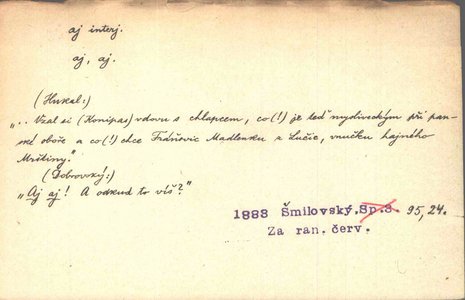 aj interj.
aj, aj.
(Hukal:)
„.. Vzal si (Konipas) vdovu s chlapcem, co(!) je teď mydliveckým při pan-
ské oboře a co(!) chce Fráňovic Madlenku z Lučic, vnučku hajného
Mrštiny."
(Dobrovský:)
„Aj aj! A odkud to víš?"
1883 Šmilovský. Sp.3. 95,24.
Za ran. červ.